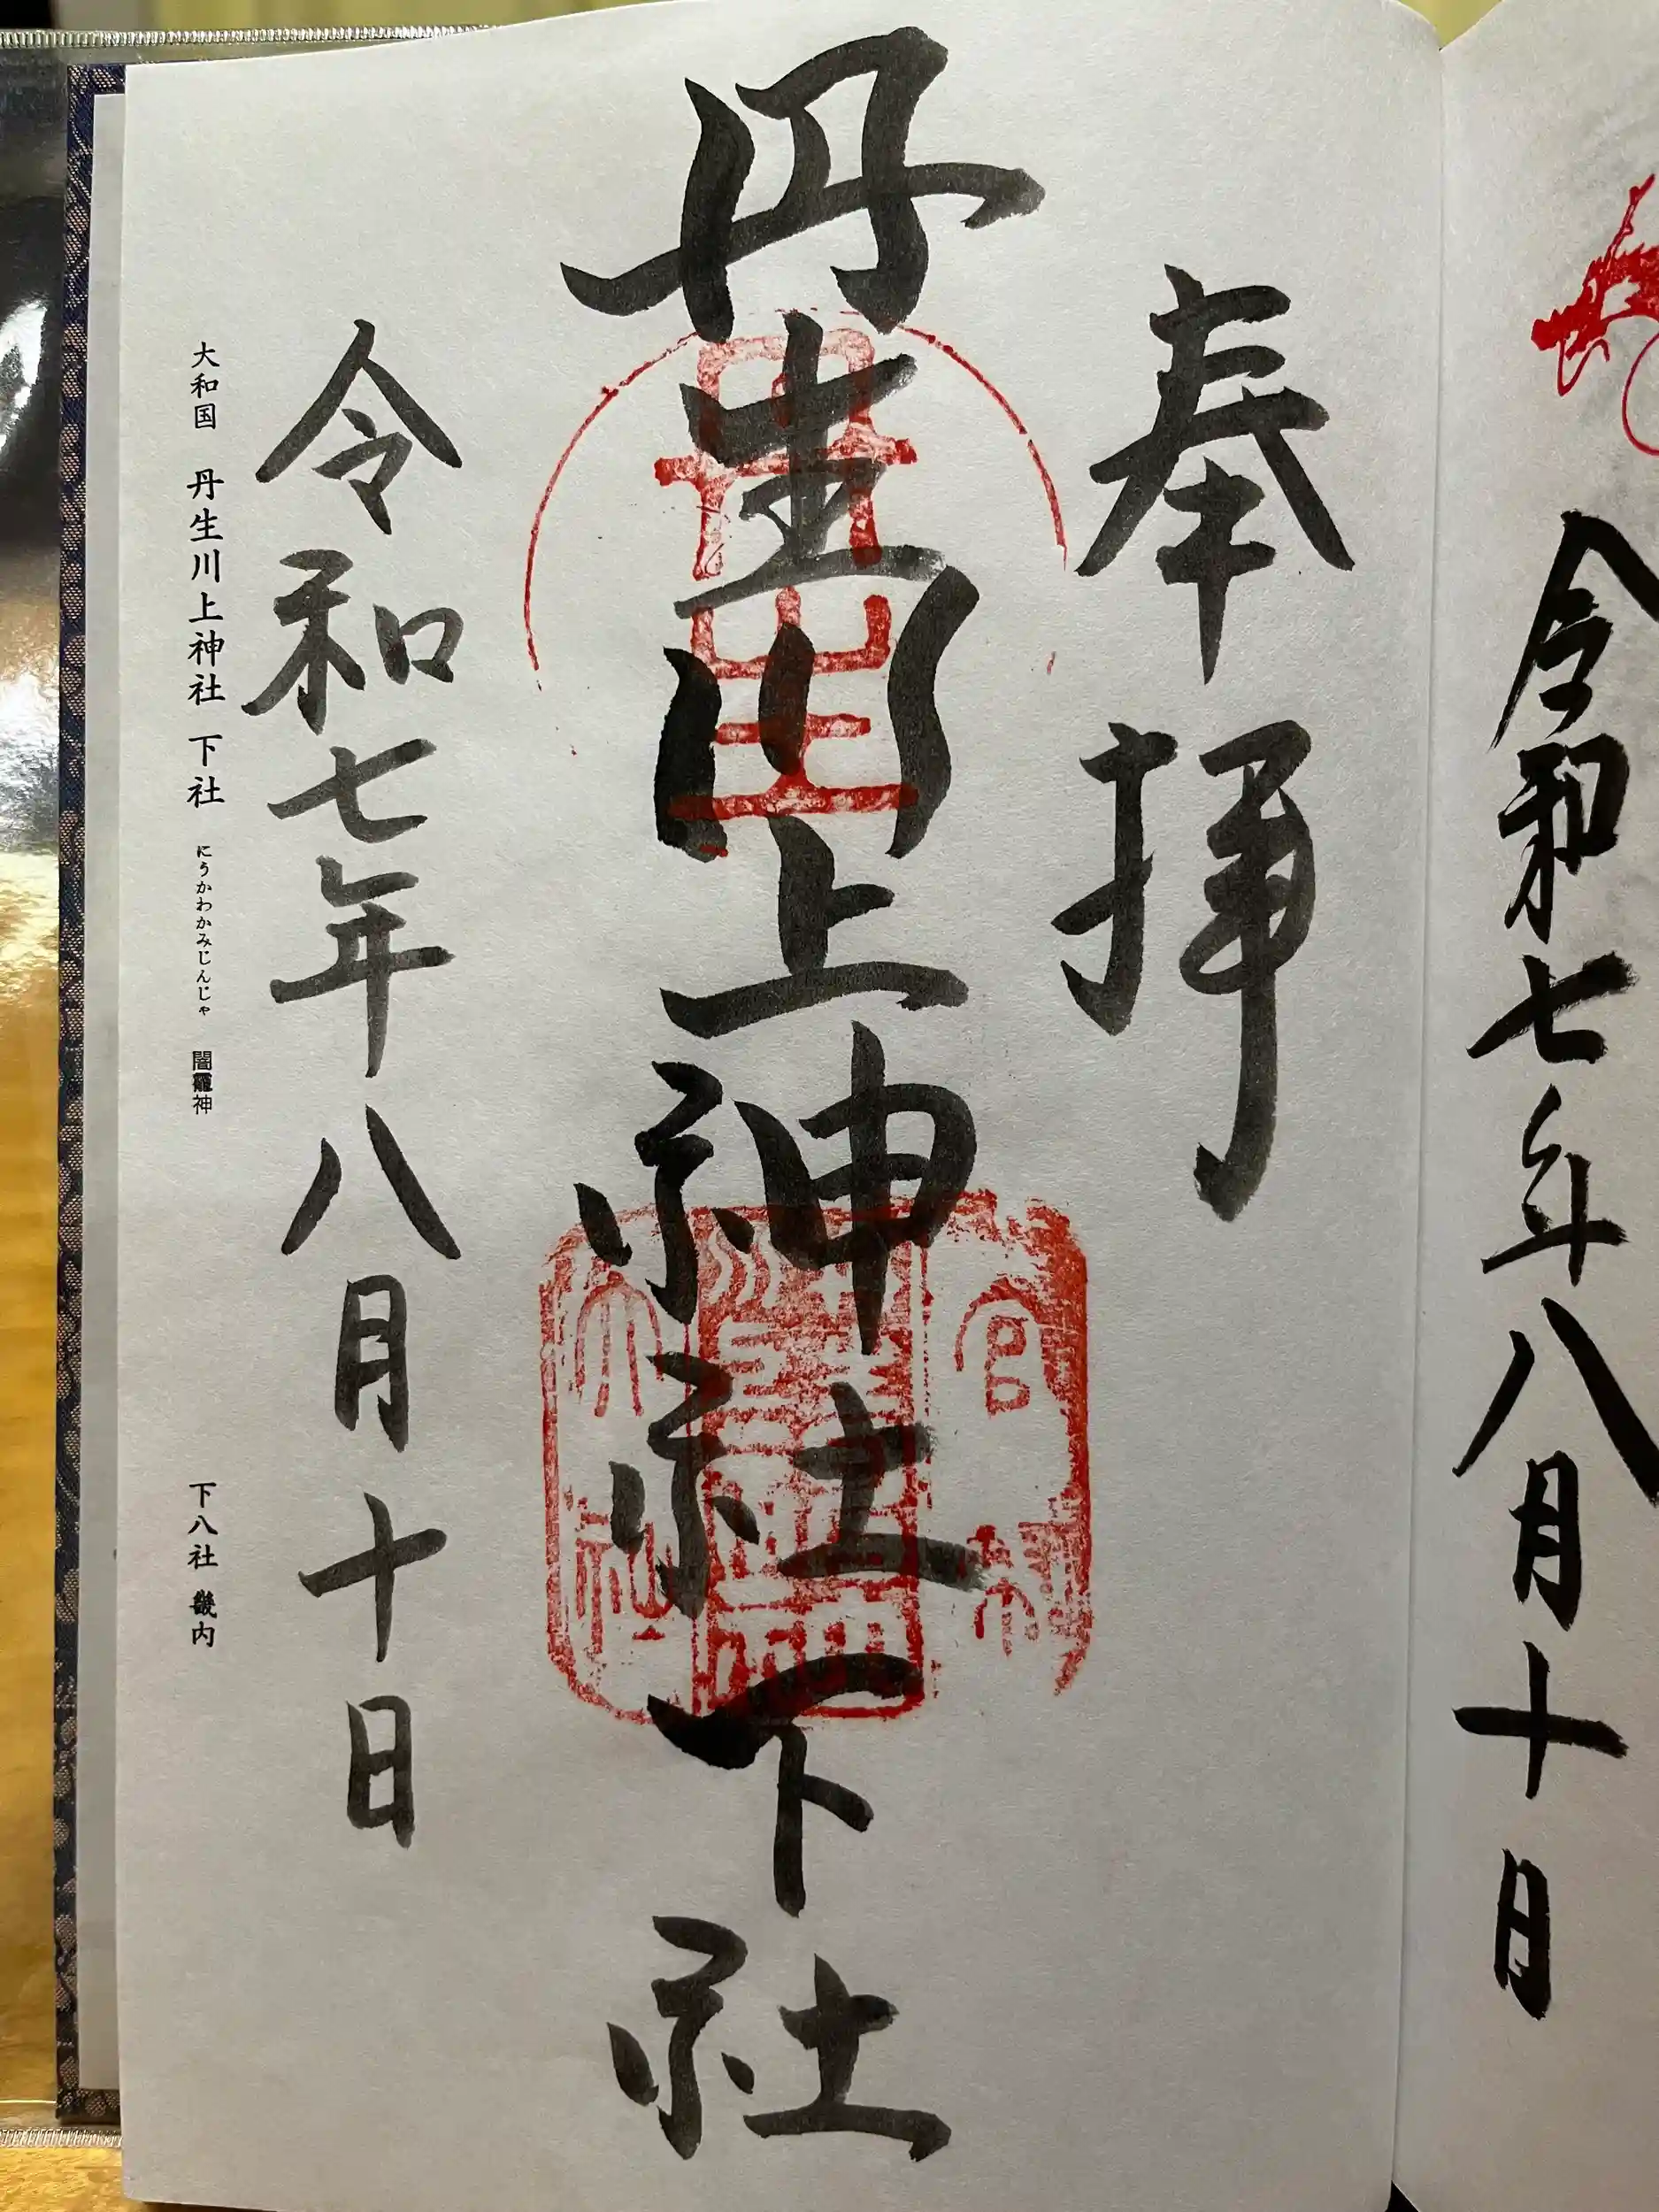 令和七年八月十日
奉拝
丹生川上神社下社
令和七年八月十日
大和国 丹生川上神社 下社 にうかわかみじんじゃ 闇龗神
下八社 畿内